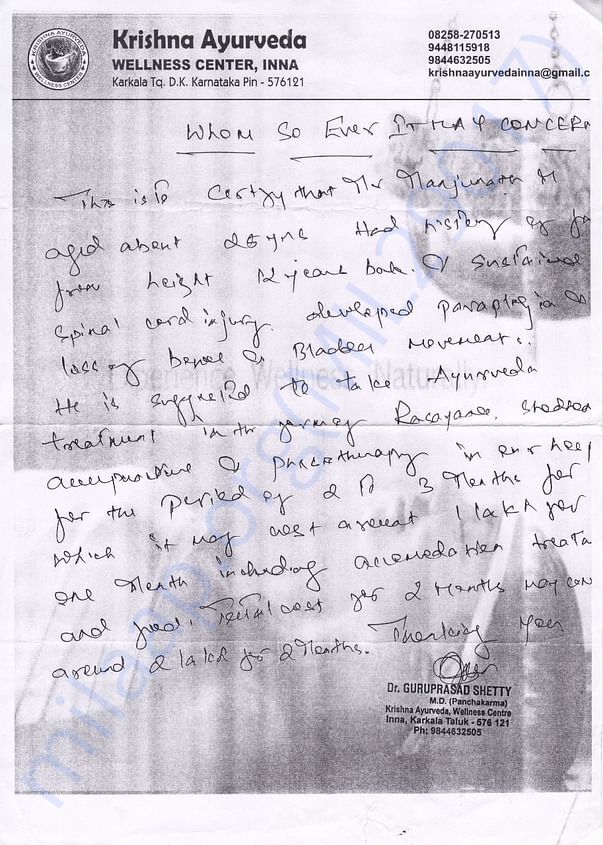 KRISHNA AYURVEDA
WELLNESS CENTER
Krishna Ayurveda
WELLNESS CENTER, INNA
Karkala Tq. D.K. Karnataka Pin - 576121
08258-270513
9448115918
9844632505
krishnaayurvedainna@gmail.c
WHOM SO EVER IT MAY CONCERN
This is to certify that Mr Manjunath
aged about 25 yrs Had history of
from height 12 years back. & sustained
spinal cord injury. developed paraplegia &
loss of bowel & Bladder movements.
He is suggested to take Ayurveda
treatment in the form of Rasayana, Shodhan
accupuncture & physiotherapy in our
for the period of 2 to 3 Months for
which it may cost around 1 lakh for
one Month including accomodation
and food. Total cost for 2 Months may
around 2 lakh for 2 Months. Thanking you
Experience Wellness Naturally
Dr. GURUPRASAD SHETTY
M.D. (Panchakarma)
Krishna Ayurveda, Wellness Centre
Inna, Karkala Taluk - 576 121
Ph: 9844632505